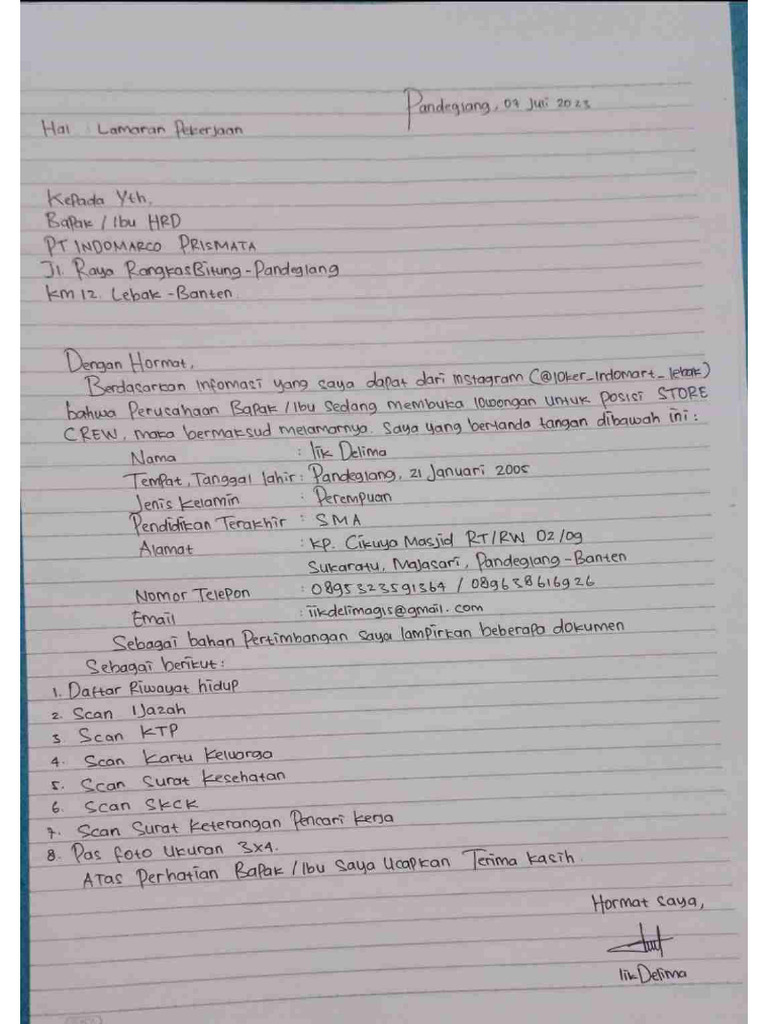 Pandeglang, 07 Juli 2023
Hal : Lamaran Pekerjaan
Kepada Yth,
Bapak / Ibu HRD
PT INDOMARCO PRISMATA
Jl. Raya RangkasBitung - Pandeglang
km 12. Lebak - Banten
Dengan Hormat,
Berdasarkan Infomasi yang saya dapat dari instagram (@loker_indomart_lebak)
bahwa Perusahaan Bapak / Ibu Sedang membuka lowongan untuk posisi STORE
CREW, maka bermaksud melamarnya. Saya yang bertanda tangan dibawah ini :
Nama : Iik Delima
Tempat, Tanggal lahir : Pandeglang, 21 Januari 2005
Jenis Kelamin : Perempuan
Pendidikan Terakhir : SMA
Alamat : Kp. Cikuya Masjid RT/RW 02/09
Sukaratu, Majasari, Pandeglang - Banten
Nomor Telepon : 0895323591364 / 089638616926
Email : iikdelimag15@gmail.com
Sebagai bahan Pertimbangan saya lampirkan beberapa dokumen
Sebagai berikut :
1. Daftar Riwayat hidup
2. Scan Ijazah
3. Scan KTP
4. Scan Kartu Keluarga
5. Scan Surat Kesehatan
6. Scan SKCK
7. Scan Surat Keterangan Pencari Kerja
8. Pas foto Ukuran 3x4.
Atas Perhatian Bapak / Ibu Saya Ucapkan Terima Kasih.
Hormat Saya,
Iik Delima